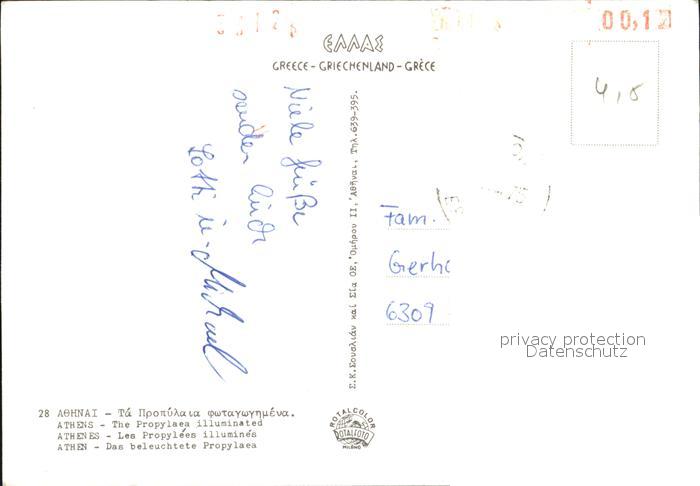 00,12
ΕΛΛΑΣ
GREECE - GRIECHENLAND - GRÈCE
4,5
Viele Grüße
senden Euch
Lotti u. Michael
Fam.
Gerh
6309
privacy protection
Datenschutz
Σ.Κ.Σουσλιάν καί Σία ΟΕ, Ὁμήρου ΙΙ, Ἀθῆναι, Τηλ.639-395.
28 ΑΘΗΝΑΙ - Τά Προπύλαια φωταγωγημένα.
ATHENS - The Propylaea illuminated
ATHENES - Les Propylées illuminés
ATHEN - Das beleuchtete Propylaea
ROTALCOLOR
ROTALFOTO
MILANO